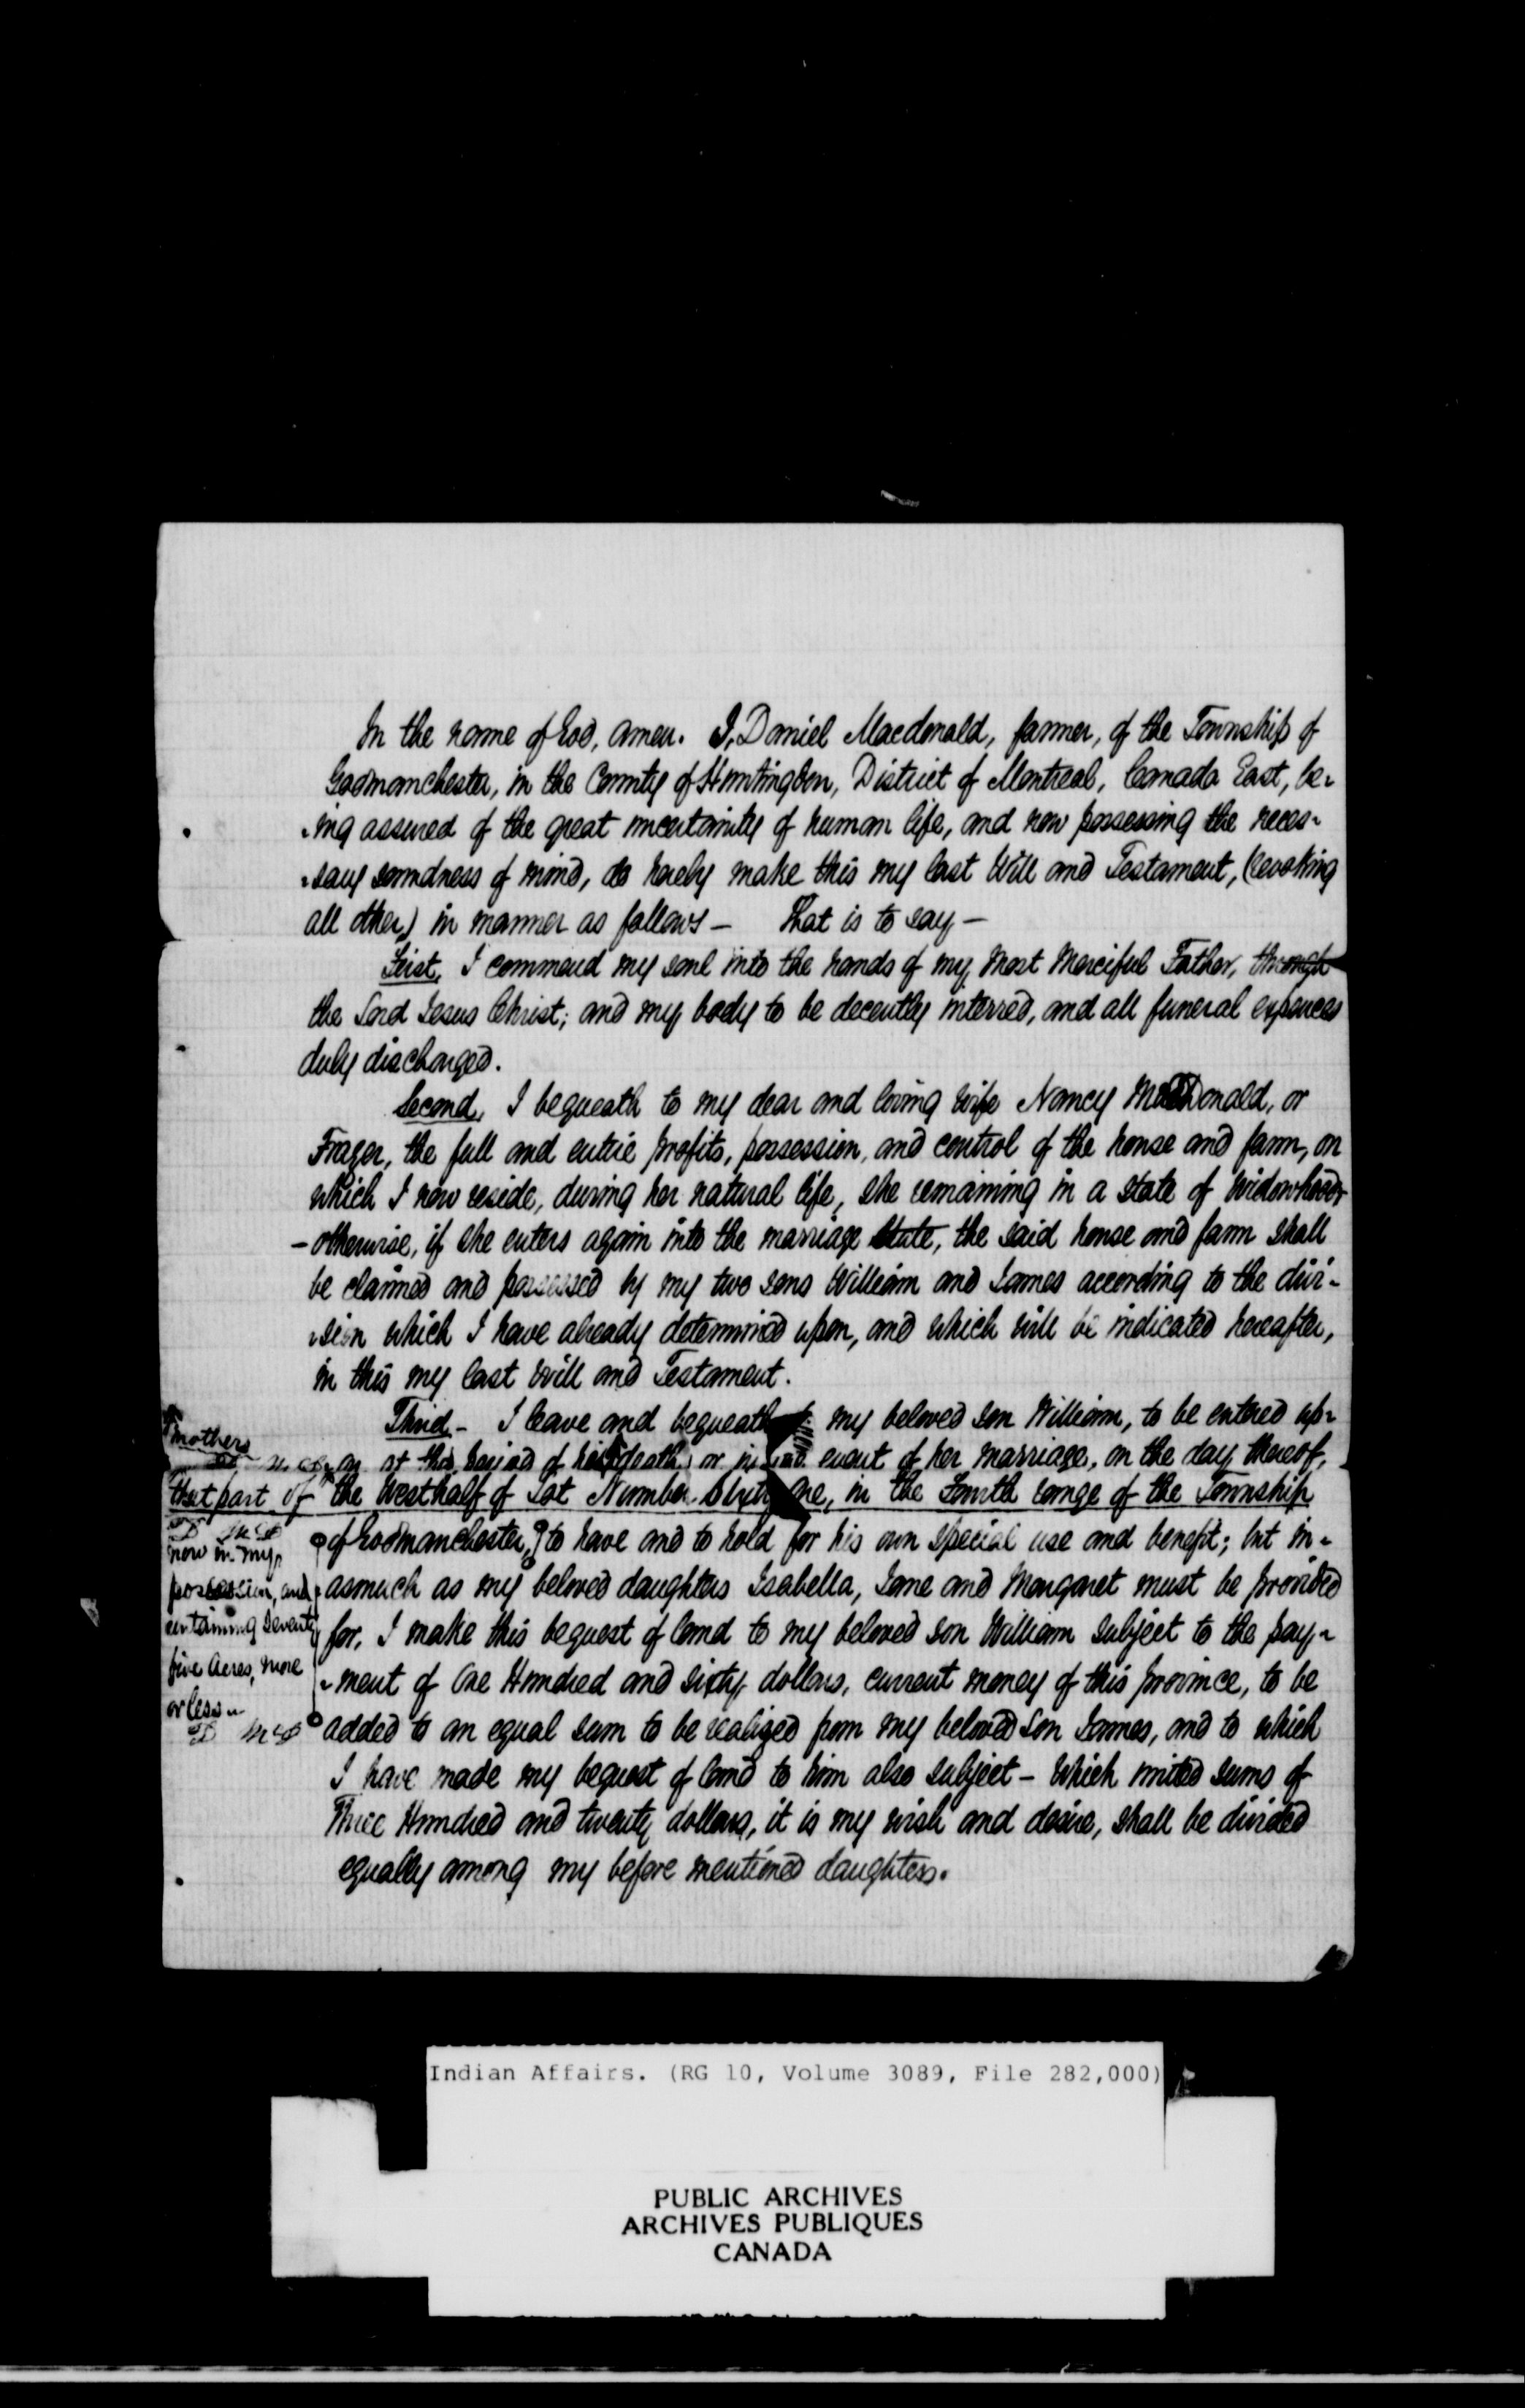 In the name of God, amen. I, Daniel Macdonald, farmer, of the Township of
Godmanchester, in the County of Huntingdon, District of Montreal, Canada East, be-
-ing assured of the great uncertainity of human life, and now possessing the neces-
-sary soundness of mind, do hereby make this my last Will and Testament, (revoking
all other) in manner as follows — That is to say —
First, I commend my soul into the hands of my most Merciful Father, through
the Lord Jesus Christ; and my body to be decently interred, and all funeral expences
duly discharged.
Second, I bequeath to my dear and loving wife Nancy McDonald, or
Frager, the full and entire profits, possession, and control of the house and farm, on
which I now reside, during her natural life, she remaining in a state of widowhood,
- otherwise, if she enters again into the marriage state, the said house and farm shall
be claimed and possessed by my two sons William and James according to the divi-
-sion which I have already determined upon, and which will be indicated hereafter,
in this my last Will and Testament.
Third - I leave and bequeath to my beloved son William, to be entered up-
mothers
on at the period of his death, or in event of her marriage, on the day thereof,
that part of the West half of Lot Number Sixty One, in the Fourth range of the Township
D McD
of Godmanchester, to have and to hold for his own special use and benefit; but in-
now in my
possession, and
asmuch as my beloved daughters Isabella, Jane and Margaret must be provided
containing seventy
for, I make this bequest of land to my beloved son William subject to the pay-
five Acres, more
-ment of One Hundred and sixty dollars, current money of this province, to be
or less -
D McD
added to an equal sum to be realized from my beloved Son James, and to which
I have made my bequest of land to him also subject - Which united sums of
Three Hundred and twenty dollars, it is my wish and desire, shall be divided
equally among my before mentioned daughters.
Indian Affairs. (RG 10, Volume 3089, File 282,000)
PUBLIC ARCHIVES
ARCHIVES PUBLIQUES
CANADA